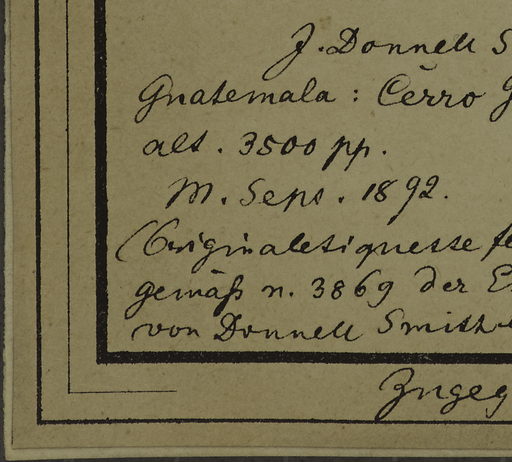 J. Donnell S
Guatemala : Cerro G
alt. 3500 pp.
M. Sept. 1892.
(Originaletiquette fe
gemäß n. 3869 der E
von Donnell Smith
Zngeg